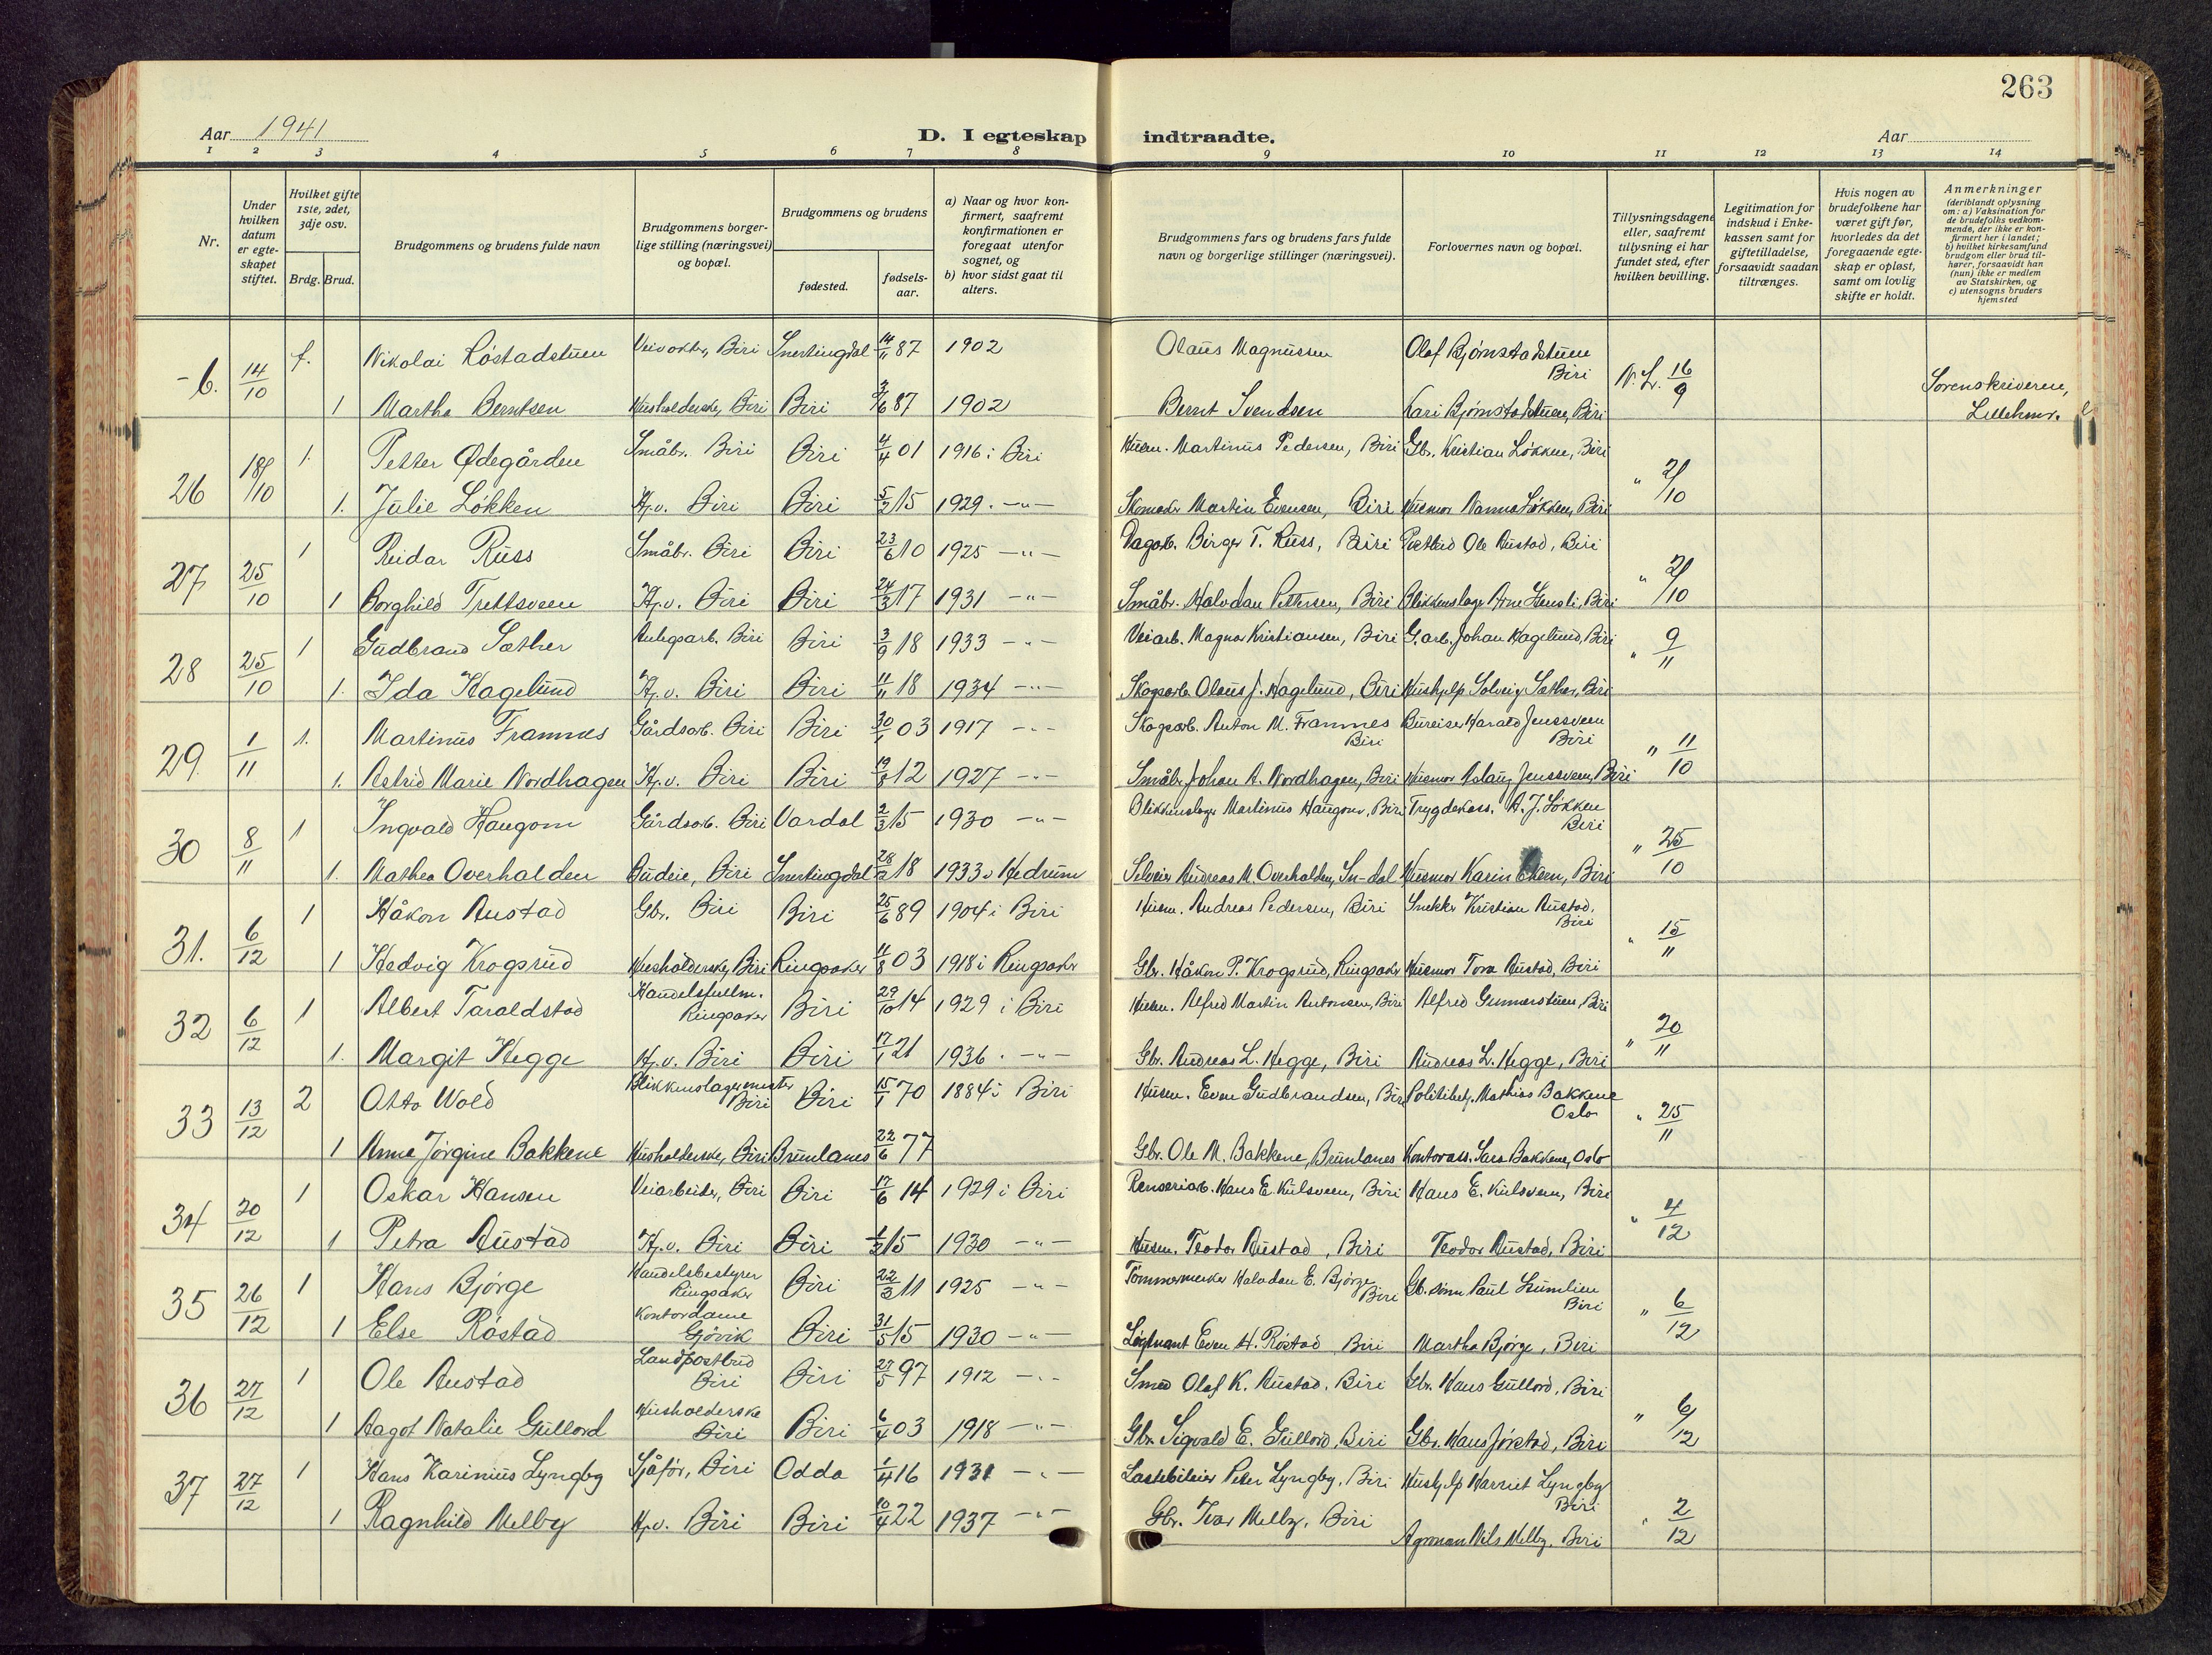 263
Aar 1941 D. I egteskap indtraadte. Aar
1 2 3 4 5 6 7 8 9 10 11 12 13 14
Nr.
Under hvilken datum er egteskapet stiftet.
Hvilket gifte 1ste, 2det, 3dje osv.
Brdg. Brud.
Brudgommens og brudens fulde navn
Brudgommens borgerlige stilling (næringsvei) og bopæl.
Brudgommens og brudens
fødested.
fødselsaar.
a) Naar og hvor konfirmert, saafremt konfirmationen er foregaat utenfor sognet, og
b) hvor sidst gaat til alters.
Brudgommens fars og brudens fars fulde navn og borgerlige stillinger (næringsvei).
Forlovernes navn og bopæl.
Tillysningsdagene eller, saafremt tillysning ei har fundet sted, efter hvilken bevilling.
Legitimation for indskud i Enkekassen samt for giftetilladelse, forsaavidt saadan tiltrænges.
Hvis nogen av brudefolkene har været gift før, hvorledes da det foregaaende egteskap er opløst, samt om lovlig skifte er holdt.
Anmerkninger (deriblandt oplysning om: a) Vaksination for de brudefolks vedkommende, der ikke er konfirmert her i landet; b) hvilket kirkesamfund brudgom eller brud tilhører, forsaavidt han (hun) ikke er medlem av Statskirken, og c) utensogns bruders hjemsted
- 6. 14/10 f. Nikolai Røstadstuen Veivokter, Biri Snertingdal 14/11 87 1902 Olaus Magnussen Olaf Bjørnstadstuen Biri N. L. 16/9 Sorenskriveren, Lillehmr.
1 Martha Berntsen Husholderske, Biri Biri 3/6 87 1902 Bernt Svendsen Kari Bjørnstadstuen, Biri
26 18/10 1. Petter Ødegården Småbr. Biri Biri 4/4 01 1916 i Biri Husm. Martinus Pedersen, Biri Gbr. Kristian Løkken, Biri " 2/10
1. Julie Løkken Hj.v. Biri Biri 5/7 15 1929. -"- Skomaker Martin Evensen, Biri Husmor Nanna Løkken, Biri
27 25/10 1 Reidar Russ Småbr. Biri Biri 23/6 10 1925 -"- Dagarb. Birger T. Russ, Biri Postbud Ole Austad, Biri " 2/10
1 Borghild Trettsveen Hj.v. Biri Biri 24/3 17 1931 -"- Småbr. Halvdan Pettersen, Biri Blikkenslager Arne Hensli, Biri
28 25/10 1 Gudbrand Sæther Anlegsarb. Biri Biri 3/9 18 1933 -"- Veiarb. Magnar Kristiansen, Biri G.arb. Johan Hagelund, Biri " 9/11
1. Ida Hagelund Hj.v. Biri Biri 11/11 18 1934 -"- Skogsarb. Olaus J. Hagelund, Biri Hushjelp Solveig Sæther, Biri
29. 1/11 1. Martinus Framnes Gårdsarb. Biri Biri 30/1 03 1917 -"- Skogsarb. Anton M. Framnes Biri Bureiser Harald Jenssveen Biri " 11/10
1. Astrid Marie Nordhagen Hj.v. Biri Biri 19/8 12 1927 -"- Småbr. Johan A. Nordhagen, Biri Husmor Aslaug Jenssveen, Biri
30 8/11 1 Ingvald Haugom Gårdsarb. Biri Vardal 2/3 15 1930 -"- Blikkenslager Martinus Haugom, Biri Trygdekass. A. J. Løkken Biri " 25/10
1. Mathea Overhalden Budeie, Biri Snertingdal 28/2 18 1933 Hedrum Selveier Andreas M. Overhalden, Sn-dal Husmor Karin Ekern, Biri
31. 6/12 1 Håkon Austad Gbr. Biri Biri 25/6 89 1904 i Biri Husm. Andreas Pedersen, Biri Snekker Kristian Austad, Biri " 15/11
1 Hedvig Krogsrud Husholderske, Biri Ringsaker 11/8 03 1918 i Ringsaker Gbr. Håkon P. Krogsrud, Ringsaker Husmor Tora Austad, Biri
32 6/12 1 Albert Taraldstad Handelsfullm. Ringsaker Biri 29/10 14 1929 i Biri Husm. Alfred Martin Antonsen, Biri Alfred Gunnerstuen, Biri " 20/11
1. Margit Hegge Hj.v. Biri Biri 17/1 21 1936. -"- Gbr. Andreas L. Hegge, Biri Andreas L. Hegge, Biri
33 13/12 2 Otto Wold Blikkenslagermester Biri Biri 15/1 70 1884 i Biri Husm. Even Gudbrandsen, Biri Politibetj. Mathias Bakkene Oslo " 25/11
1 Anna Jørgine Bakkene Husholderske, Biri Brunlanes 22/6 77 Gbr. Ole M. Bakkene, Brunlanes Kontorass. Sara Bakkene, Oslo
34 20/12 1 Oskar Hansen Veiarbeider, Biri Biri 17/6 14 1929 i Biri Renseriarb. Hans E. Kulsveen, Biri Hans E. Kulsveen, Biri " 4/12
1 Petra Austad Hj.v. Biri Biri 1/2 15 1930 -"- Husm. Teodor Austad, Biri Teodor Austad, Biri
35 26/12 1 Hans Bjørge Handelsbestyrer Ringsaker Biri 22/3 11 1925 -"- Tømmermerker Halvdan E. Bjørge Biri Gb. sønn Paul Lumlien Biri " 6/12
1 Else Røstad Kontordame Gjøvik Biri 31/5 15 1930 -"- Løytnant Even H. Røstad Biri Martha Bjørge, Biri
36 27/12 1 Ole Austad Landpostbud Biri Biri 27/5 97 1912 -"- Smed Olaf K. Austad, Biri Gbr. Hans Gullord, Biri " 6/12
1 Aagot Natalie Gullord Husholderske Biri Biri 6/4 03 1918 -"- Gbr. Sigvald E. Gullord, Biri Gbr. Hans Jørstad, Biri
37 27/12 1 Hans Karinius Lyngby Sjåfør, Biri Odda 1/4 16 1931 -"- Lastebileier Peter Lyngby, Biri Hushjelp Harriet Lyngby Biri " 2/12
1 Ragnhild Melby Hj.v. Biri Biri 10/4 22 1937 -"- Gbr. Ivar Melby, Biri Agronom Nils Melby, Biri